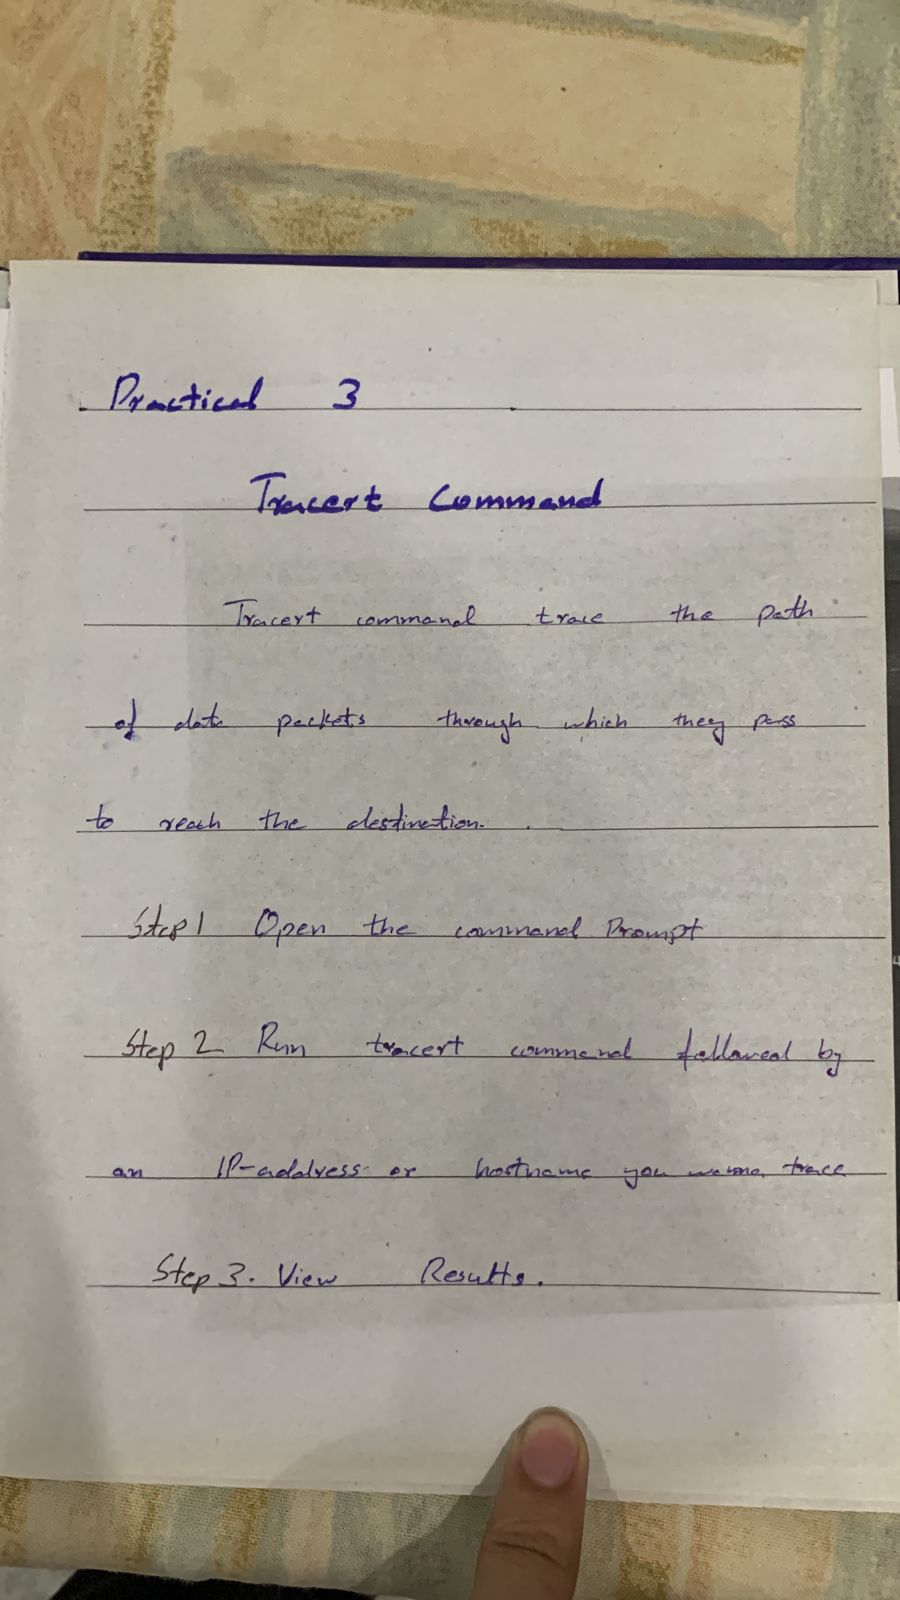 Practical 3
Tracert Command
Tracert command trace the path
of data packets through which they pass
to reach the destination.
Step 1 Open the command Prompt
Step 2 Run tracert command followed by
an IP-address or hostname you trace
Step 3. View Results.